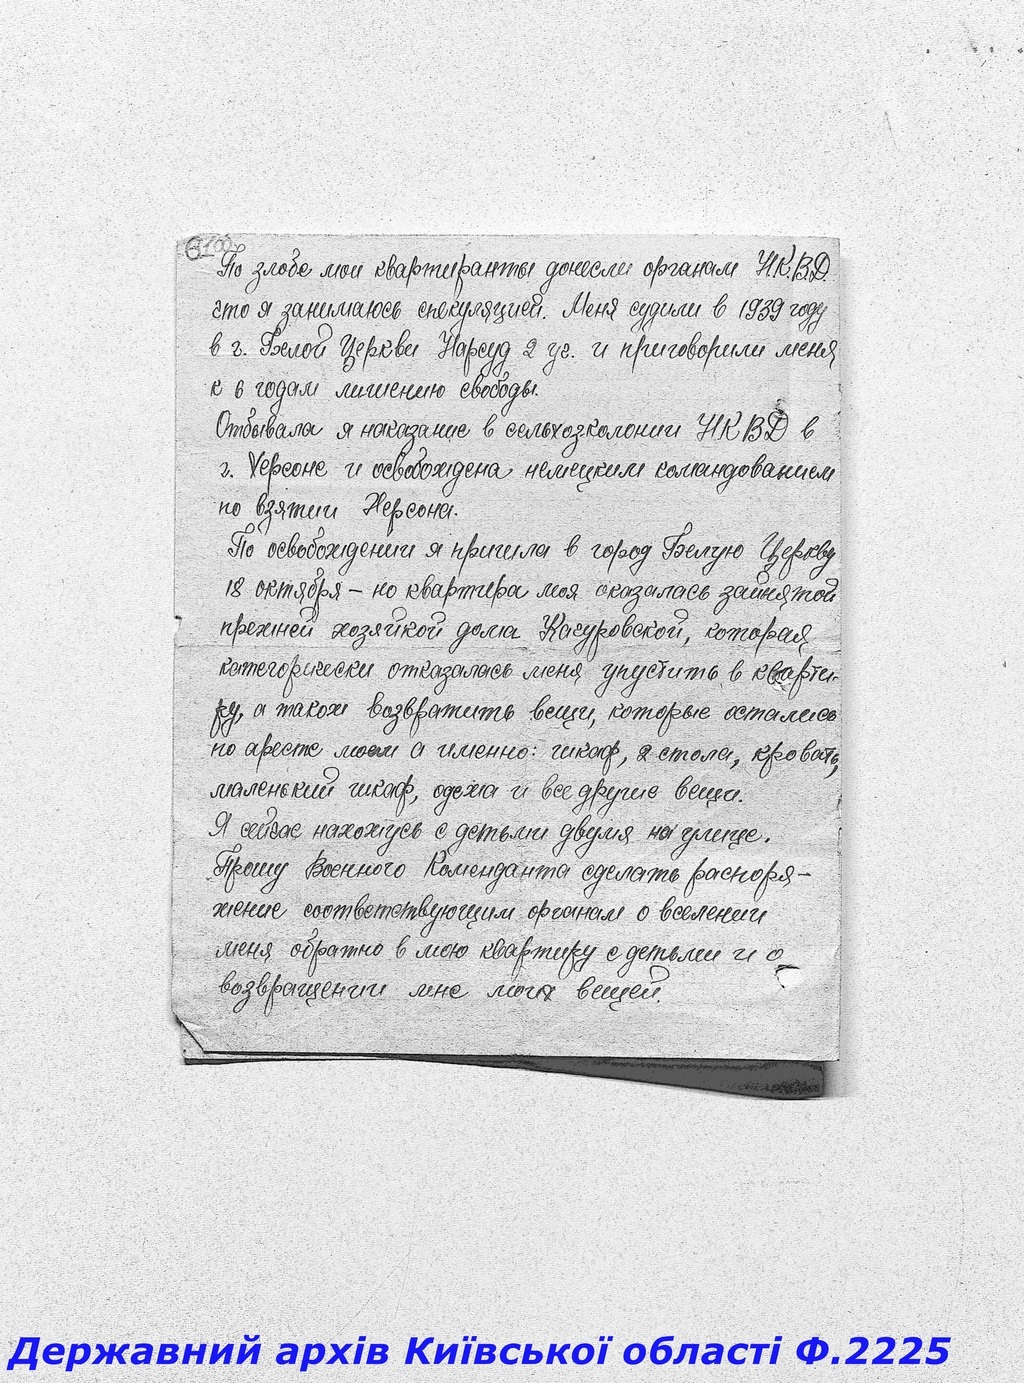 По злобе мои квартиранты донесли органам Н.К.В.Д.
что я занимаюсь спекуляцией. Меня судили в 1939 году
в г. Белой Церкви Нарсуд 2 уч. и приговорили меня
к 6 годам лишению свободы.
Отбывала я наказание в сельхозколонии НКВД в
г. Херсоне и освобождена немецким командованием
по взятии Херсона.
По освобождении я пришла в город Белую Церковь
18 октября – но квартира моя оказалась зайнятой
прежней хозяйкой дома Качуровской, которая
категорически отказалась меня упустить в кварти-
ру, а також возвратить вещи, которые остались
по аресте моем а именно: шкаф, 2 стола, кровать,
маленький шкаф, одежа и все другие вещи.
Я сейчас нахожусь с детьми двумя на улице.
Прошу Военного Коменданта сделать распоря-
жение соответствующим органам о вселении
меня обратно в мою квартиру с детьми и о
возвращении мне моих вещей.
Державний архів Київської області Ф.2225